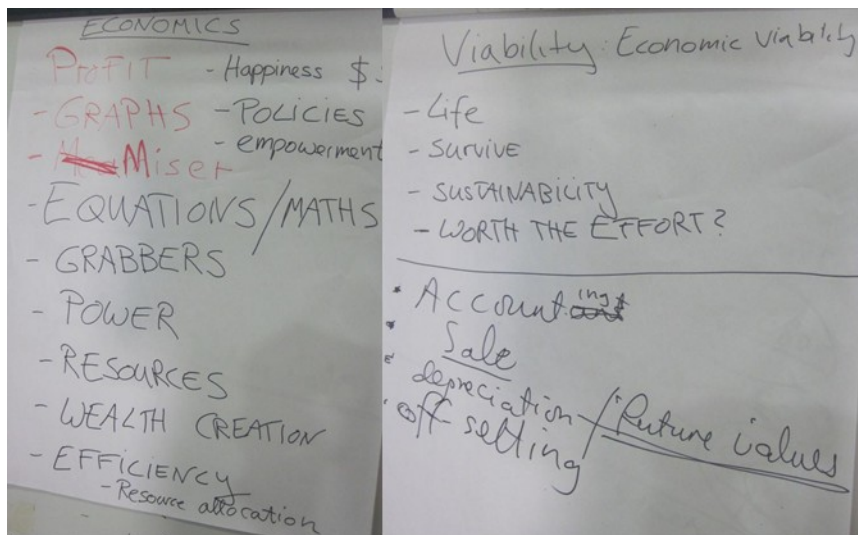 ECONOMICS
PROFIT - Happiness $
- GRAPHS - POLICIES
- Miser - empowerment
- EQUATIONS/MATHS
- GRABBERS
- POWER
- RESOURCES
- WEALTH CREATION
- EFFICIENCY
- Resource allocation
Viability: Economic viability
- Life
- SURVIVE
- SUSTAINABILITY
- WORTH THE EFFORT?
Accounting
Sale
depreciation / Future values
off setting